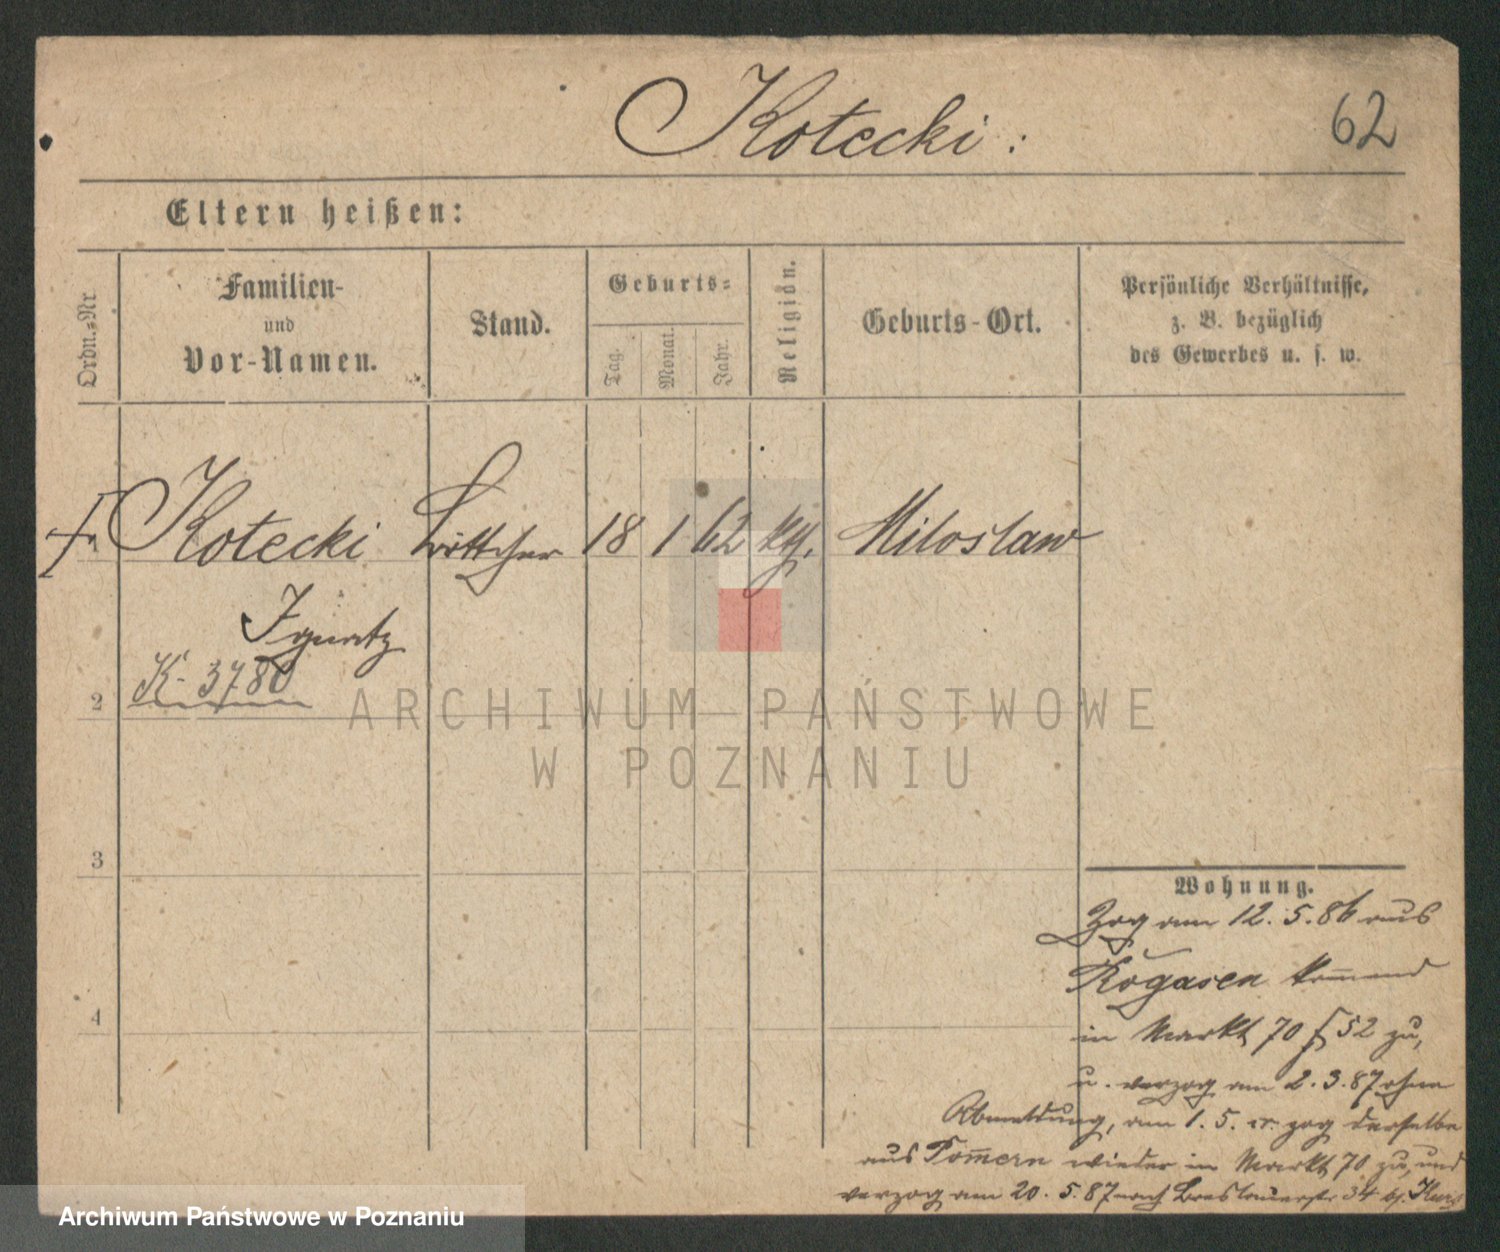 Kotecki:
62
Eltern heißen:
Ordn.-Nr
Familien-
und
Vor-Namen.
Stand.
Geburts-
Tag.
Monat.
Jahr.
Religion.
Geburts-Ort.
Persönliche Verhältnisse,
z. B. bezüglich
des Gewerbes u. s. w.
Kotecki Böttcher 18 1 62 kth. Miloslaw
Ignatz
K. 3780
2
3
4
ARCHIWUM PAŃSTWOWE
W POZNANIU
Wohnung.
Zog am 12.5.86 aus
Rogasen kommend
in Markt 70 f 52 zu,
u. verzog am 2.3.87 ohne
Abmeldung, am 1.5. cr. zog derselbe
aus Pommern wieder in Markt 70 zu, und
verzog am 20.5.87 nach Breslauerstr 34 bj.
Archiwum Państwowe w Poznaniu